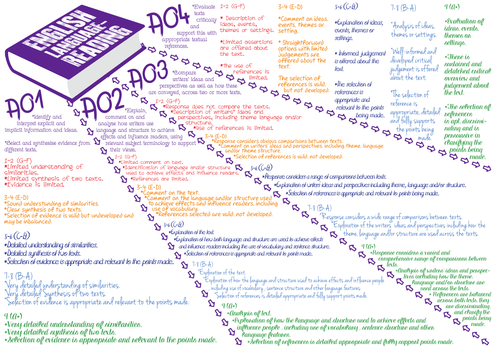 ENGLISH LANGUAGE GRADING
AO4
*Evaluate texts critically and support this with appropriate textual references.
1-2 (G-F)
* Description of ideas, events, themes or settings.
* Limited assertions are offered about the text.
*The use of references is limited.
3-4 (E-D)
*Comment on ideas, events, themes or setting.
*Straightforward opinions with limited judgements are offered about the text.
*The selection of references is valid but not developed.
5-6 (C-B)
*Explanation of ideas, events, themes or settings.
*Informed judgement is offered about the text.
*The selection of references is appropriate and relevant to the points being made.
7-8 (B-A)
*Analysis of ideas, themes or settings.
*Well-informed and developed critical judgement is offered about the text.
*The selection of references is appropriate, detailed and fully supports the points being made.
9 (A*)
*Evaluation of ideas, events, themes or settings.
*There is sustained and detailed critical overview and judgement about the text.
*The selection of references is apt, discriminating and is persuasive in clarifying the points being made.
AO3
*Compare writers' ideas and perspectives as well as how these are conveyed, across two or more texts.
1-2 (G-F)
*Response does not compare the texts.
*Description of writers' ideas and perspectives, including theme, language and/or structure.
*Use of references is limited.
3-4 (E-D)
*Response considers obvious comparisons between texts.
*Comment on writers' ideas and perspectives including theme, language and/or theme structure.
*Selection of references is valid not developed.
5-6 (C-B)
*Response considers a range of comparisons between texts.
*Explanation of writers ideas and perspectives including theme, language and/or structure.
*Selection of references is appropriate and relevant to points being made.
7-8 (B-A)
*Response considers a wide range of comparisons between texts.
*Exploration of the writers' ideas and perspectives including how the theme, language and/or structure are used across the texts.
9 (A*)
*Response considers a varied and comprehensive range of comparisons between texts.
*Analysis of writers' ideas and perspectives including how the theme, language and/or structure are used across the texts.
*References are balanced across both texts, they are discriminating and clarify the points being made.
AO2
*Explain, comment on and analyse how writers use language and structure to achieve effects and influence readers, using relevant subject terminology to support their views.
1-2 (G-F)
*Limited comment on text.
*Identification of language and/or structure used to achieve effects and influence readers.
*References are limited.
3-4 (E-D)
*Comment on the text.
*Comment on the language and/or structure used to achieve effects and influence readers including use of vocabulary.
*References selected are valid not developed.
5-6 (C-B)
*Explanation of the text.
*Explanation of how both language and structure are used to achieve effects and influence readers including the use of vocabulary and sentence structure.
*Selection of references is appropriate and relevant to points being made.
7-8 (B-A)
*Exploration of the text.
*Exploration of how the language and structure used to achieve effects and influence people including use of vocabulary, sentence structure and other language features.
*Selection of references is detailed appropriate and fully support points made.
9 (A*)
*Analysis of text.
*Exploration of how the language and structure used to achieve effects and influence people including use of vocabulary, sentence structure and other language features.
*Selection of references is detailed appropriate and fully support points made.
AO1
*Identify and interpret explicit and implicit information and ideas.
*Select and synthesise evidence from different texts.
1-2 (G-F)
*Limited understanding of similarities.
*Limited synthesis of two texts.
*Evidence is limited.
3-4 (E-D)
*Sound understanding of similarities.
*Clear synthesis of two texts.
*Selection of evidence is valid but undeveloped and may be imbalanced.
5-6 (C-B)
*Detailed understanding of similarities.
*Detailed synthesis of two texts.
*Selection of evidence is appropriate and relevant to the points made.
7-8 (B-A)
*Very detailed understanding of similarities.
*Very detailed synthesis of two texts.
*Selection of evidence is appropriate and relevant to the points made.
9 (A*)
*Very detailed understanding of similarities.
*Very detailed synthesis of two texts.
*Selection of evidence is appropriate and relevant to the points made.